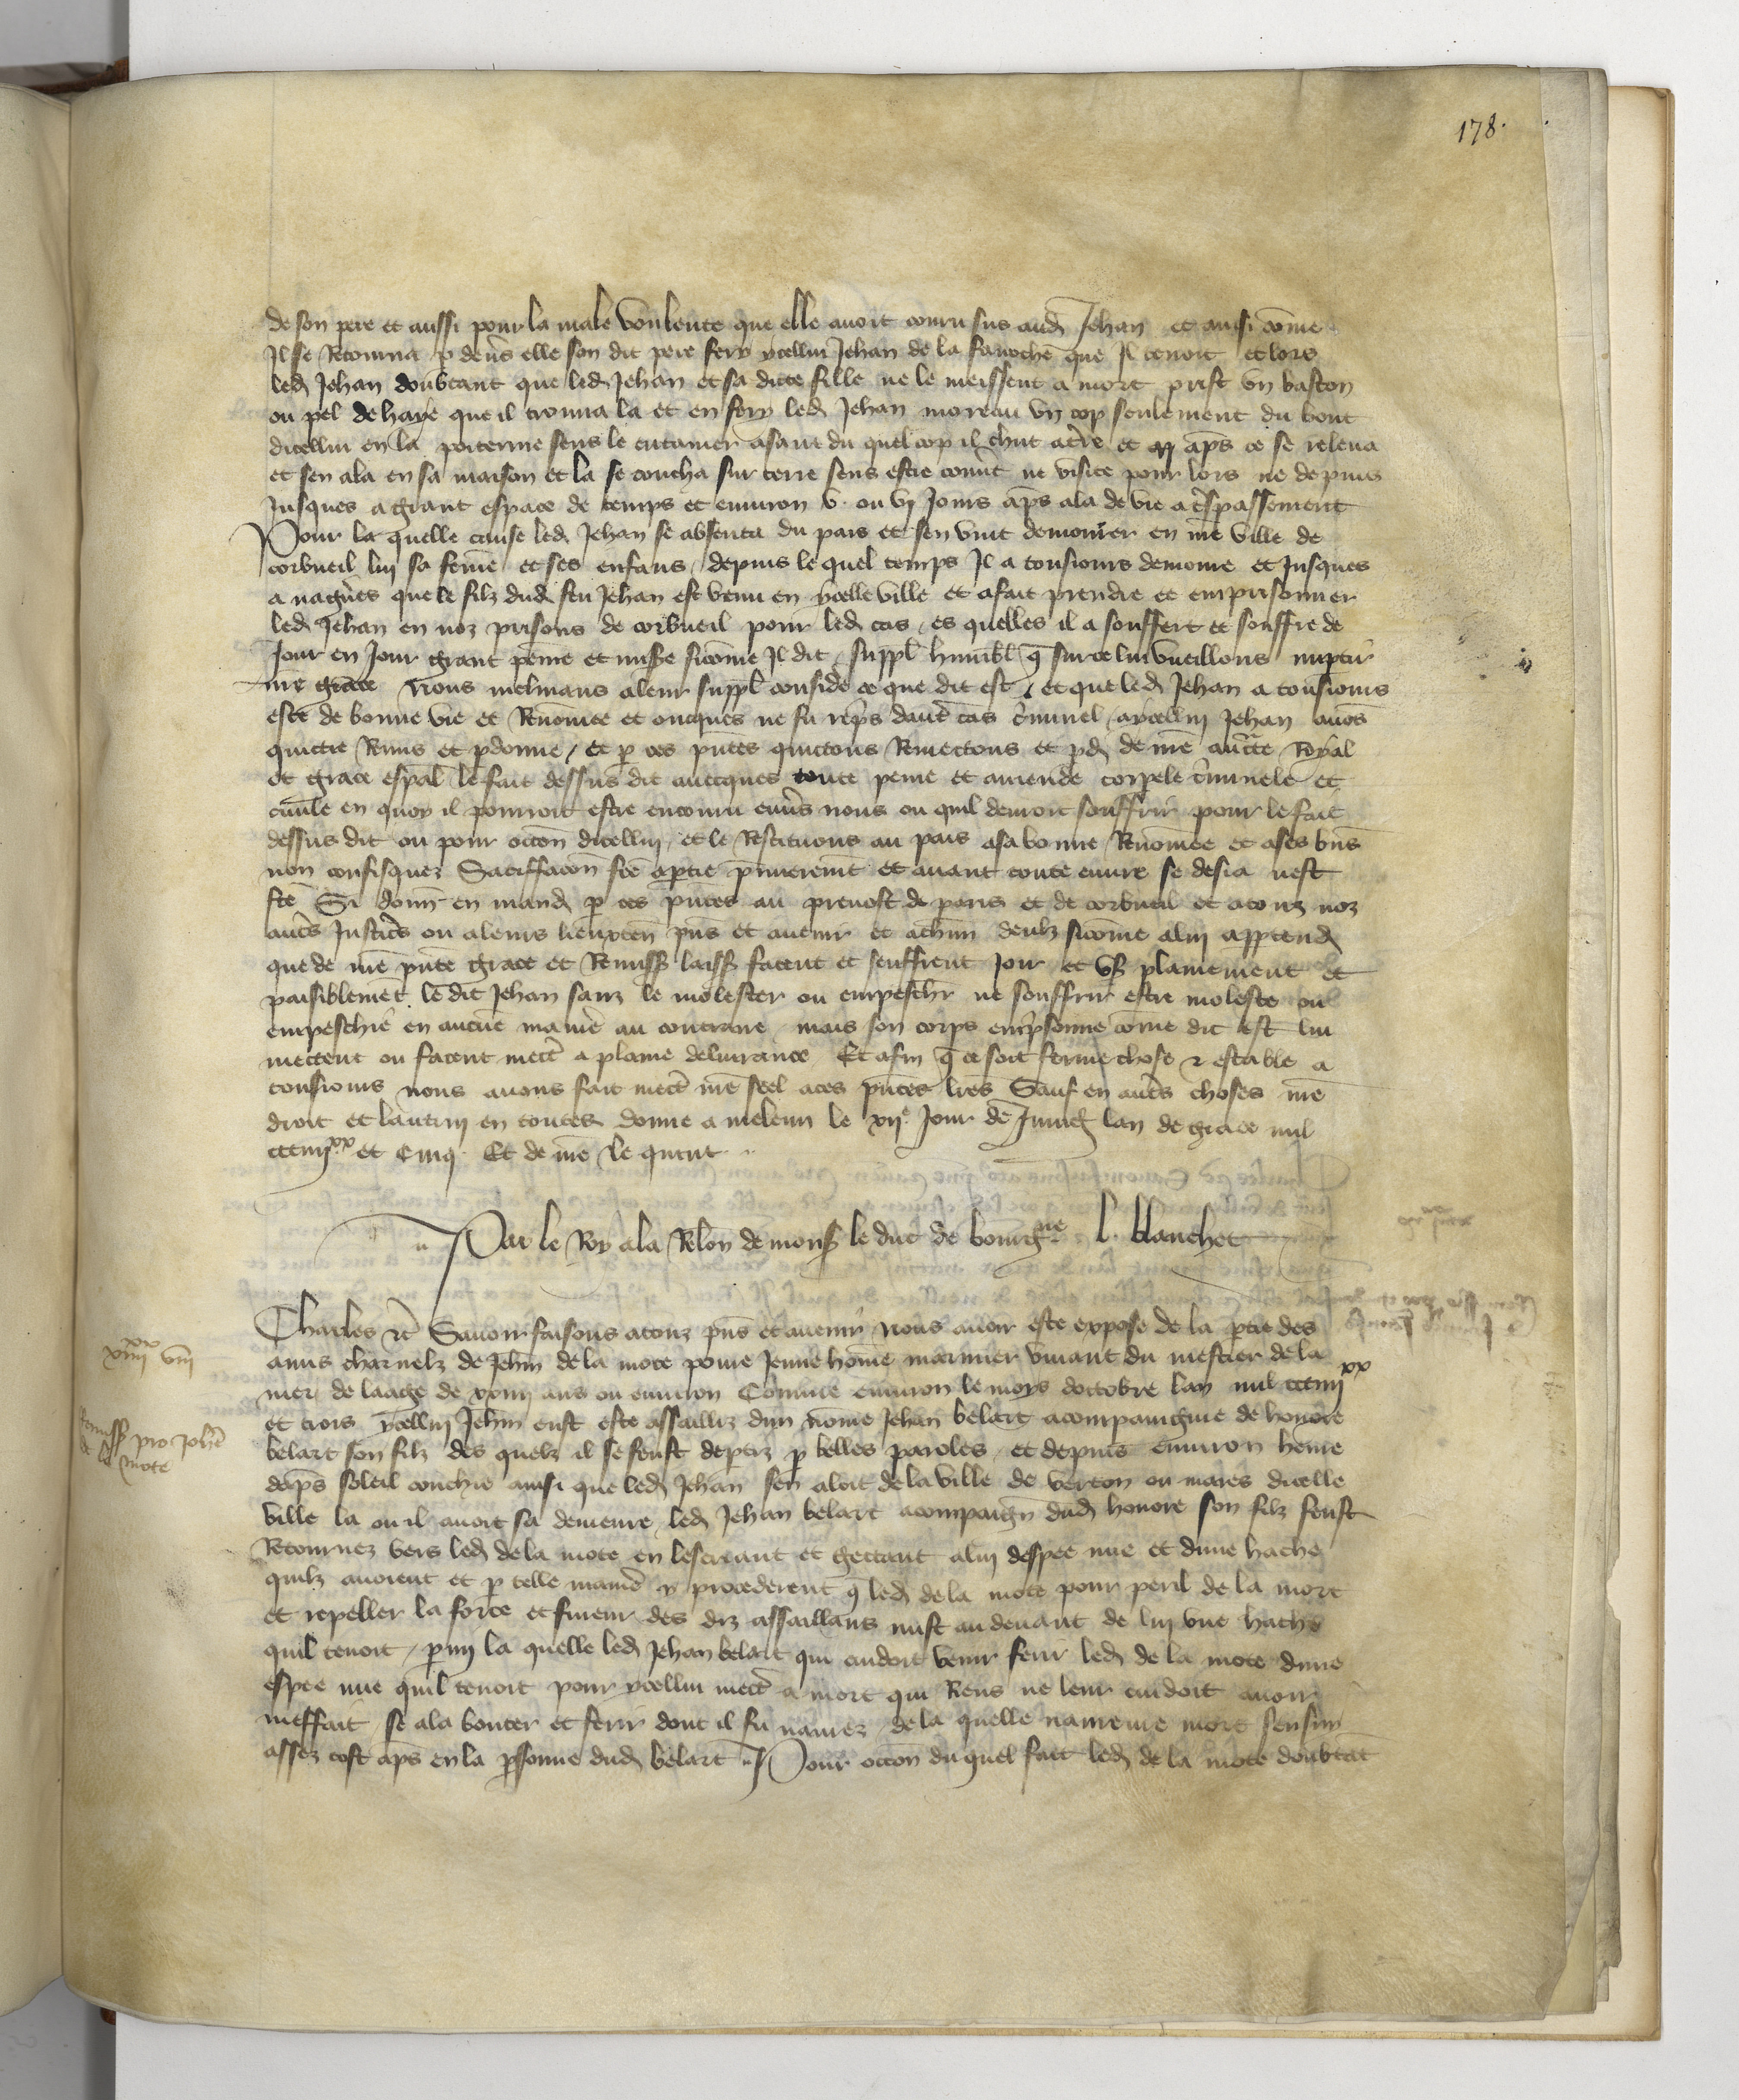 178.
de son pere et aussi pour la male voulente que elle avoit couru sus aud Jehan et ainsi cōme
Il se Retourna p devs elle son dit pere fery ycellui Jehan de la fauoche que Il tenoit et lors
led Jehan doubtant que led Jehan et sa dicte fille ne le meissent a mort prist vn baston
ou pel de haye que il trouua la et en fery led Jehan moreau vn cop seulement du bout
dicellui en la poiterine sens le entamer asant du quel cop il chut a tre et aps ce se releua
et sen ala en sa maison et la se coucha sur terre sens estre couut ne visite pour lors ne depuis
Jusques a grant espace de temps et enuiron v. ou vj Jours aps ala de vie a trespassement
Pour la quelle cause led Jehan se absenta du pais et sen vint demourer en nre ville de
corbueil lui sa feme et ses enfans, depuis le quel temps Il a tousiours demoure et Jusques
a nagres que le filz dud feu Jehan est venu en ycelle ville et a fait prendre et emprisonner
led Jehan en noz prisons de corbueil pour led cas, es quelles il a souffert et souffre de
Jour en Jour grant peine et misere sicōme Il dit, suppl humbl q sur ce lui vueillons impartir
nre grace Nous inclinans a leur suppl conside ce que dit est, et que led Jehan a tousiours
este de bonne vie et Renōmee et oncques ne fu reps daut cas criminel, a ycellui Jehan auōs
quictie Remis et pdonne, et p ces pntes quictons Remectons et pd de nre aucte Royal
et grace espal le fait dessus dit auecques toute peine et amende corpele criminele et
ciuile en quoy il pourroit estre encouru enus nous ou quil deuroit souffrir pour le fait
dessus dit ou pour occon dicellui, et le Restituons au pais a sa bonne Renōmee et a ses bns
non confisquez Satiffacon fce a ptie pmierement et auant toute euure se desia nest
fce Si donn en mand p ces pntes au preuost de paris et de corbueil et a touz noz
auts Justics ou a leurs lieuxten pns et auenir et a chun deulz sicōme a lui apptend
que de nre pnte grace et Remiss laiss facent et seuffrent Joir et vs plainement et
paisiblemet le dit Jehan sanz le molester ou empeschr ne souffrir estre moleste ou
empeschie en aucue manie au contraire mais son corps emprisonne cōme dit est lui
mectent ou facent mect a plaine deliurance Et afin q ce soit ferme chose & estable a
tousiours nous auons fait mect nre seel a ces pntes lres Sauf en auts choses nre
droit et lautrui en toutes donne a meleun le xije Jour de Juing lan de grace mil
ccciiijxx et Cinq. Et de nre le quint
Par le Roy a la Relon de mons le duc de bourgne L. blanchet
Charles &c Sauoir faisons a touz pns et auenir Nous auoir este expose de la ptie des
amis charnelz de Jehan de la mote poure Jeune hōme marinier viuant du mestier de la
mer de laage de xxiiij ans ou enuiron Cōme enuiron le moys doctobre lan mil ccciiijxx
et trois ycellui Jehan eust este assailliz dun nōme Jehan belart acompaingnie de honore
belart son filz des quelz il se feust deptiz p belles paroles, et depuis enuiron heure
daps soleil couchie ainsi que led Jehan sen aloit de la ville de verton ou mares dicelle
ville la ou il auoit sa demeure, led Jehan belart acompaign dud honore son filz feust
Retournez vers led de la mote en lescriant et gectant a lui despee nue et dune hache
quilz auoient et p telle manie y procederent q led de la mote pour peril de la mort
et repeller la force et fureur des diz assaillans mist au deuant de lui vne hache
quil tenoit, pmi la quelle led Jehan belart qui cuidoit venir ferir led de la mote dune
espee nue quil tenoit pour ycellui mect a mort qui Riens ne leur cuidoit auoir
meffait, se ala bouter et ferir dont il fu naurez, de la quelle naureure mort sensui
assez tost aps en la psonne dud belart Pour occon du quel fait led de la mote doubtāt
xxiiii viii
Remiss pro Johe
de la mote